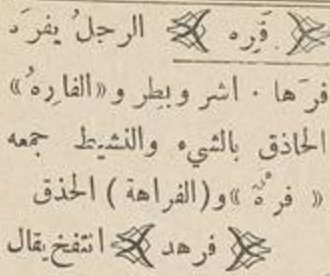 فَرِه الرجلُ يفرَه
فرَها . اشر وبطِر و«الفارِهُ»
الحاذق بالشيء والنشيط جمعه
« فرْهٌ »و(الفراهة) الحذق
فرهد انتفخ يقال